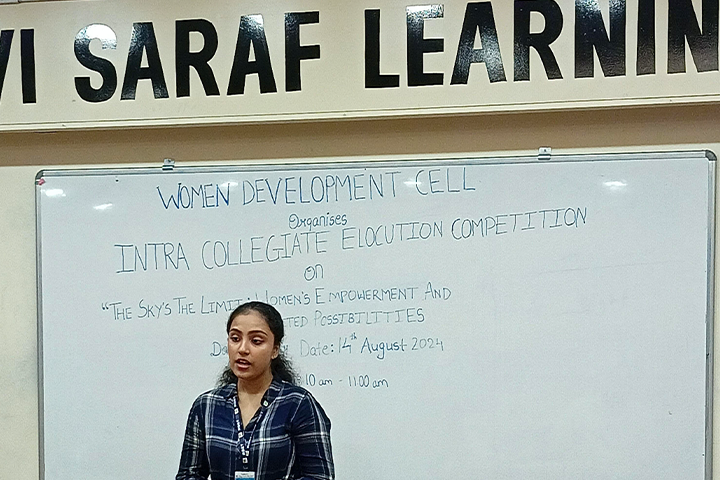 VI SARAF LEARNIN
WOMEN DEVELOPMENT CELL
Organises
INTRA COLLEGIATE ELOCUTION COMPETITION
on
"THE SKY'S THE LIMIT: WOMEN'S EMPOWERMENT AND
POSSIBILITIES
Date: 14th August 2024
10 am - 11:00 am